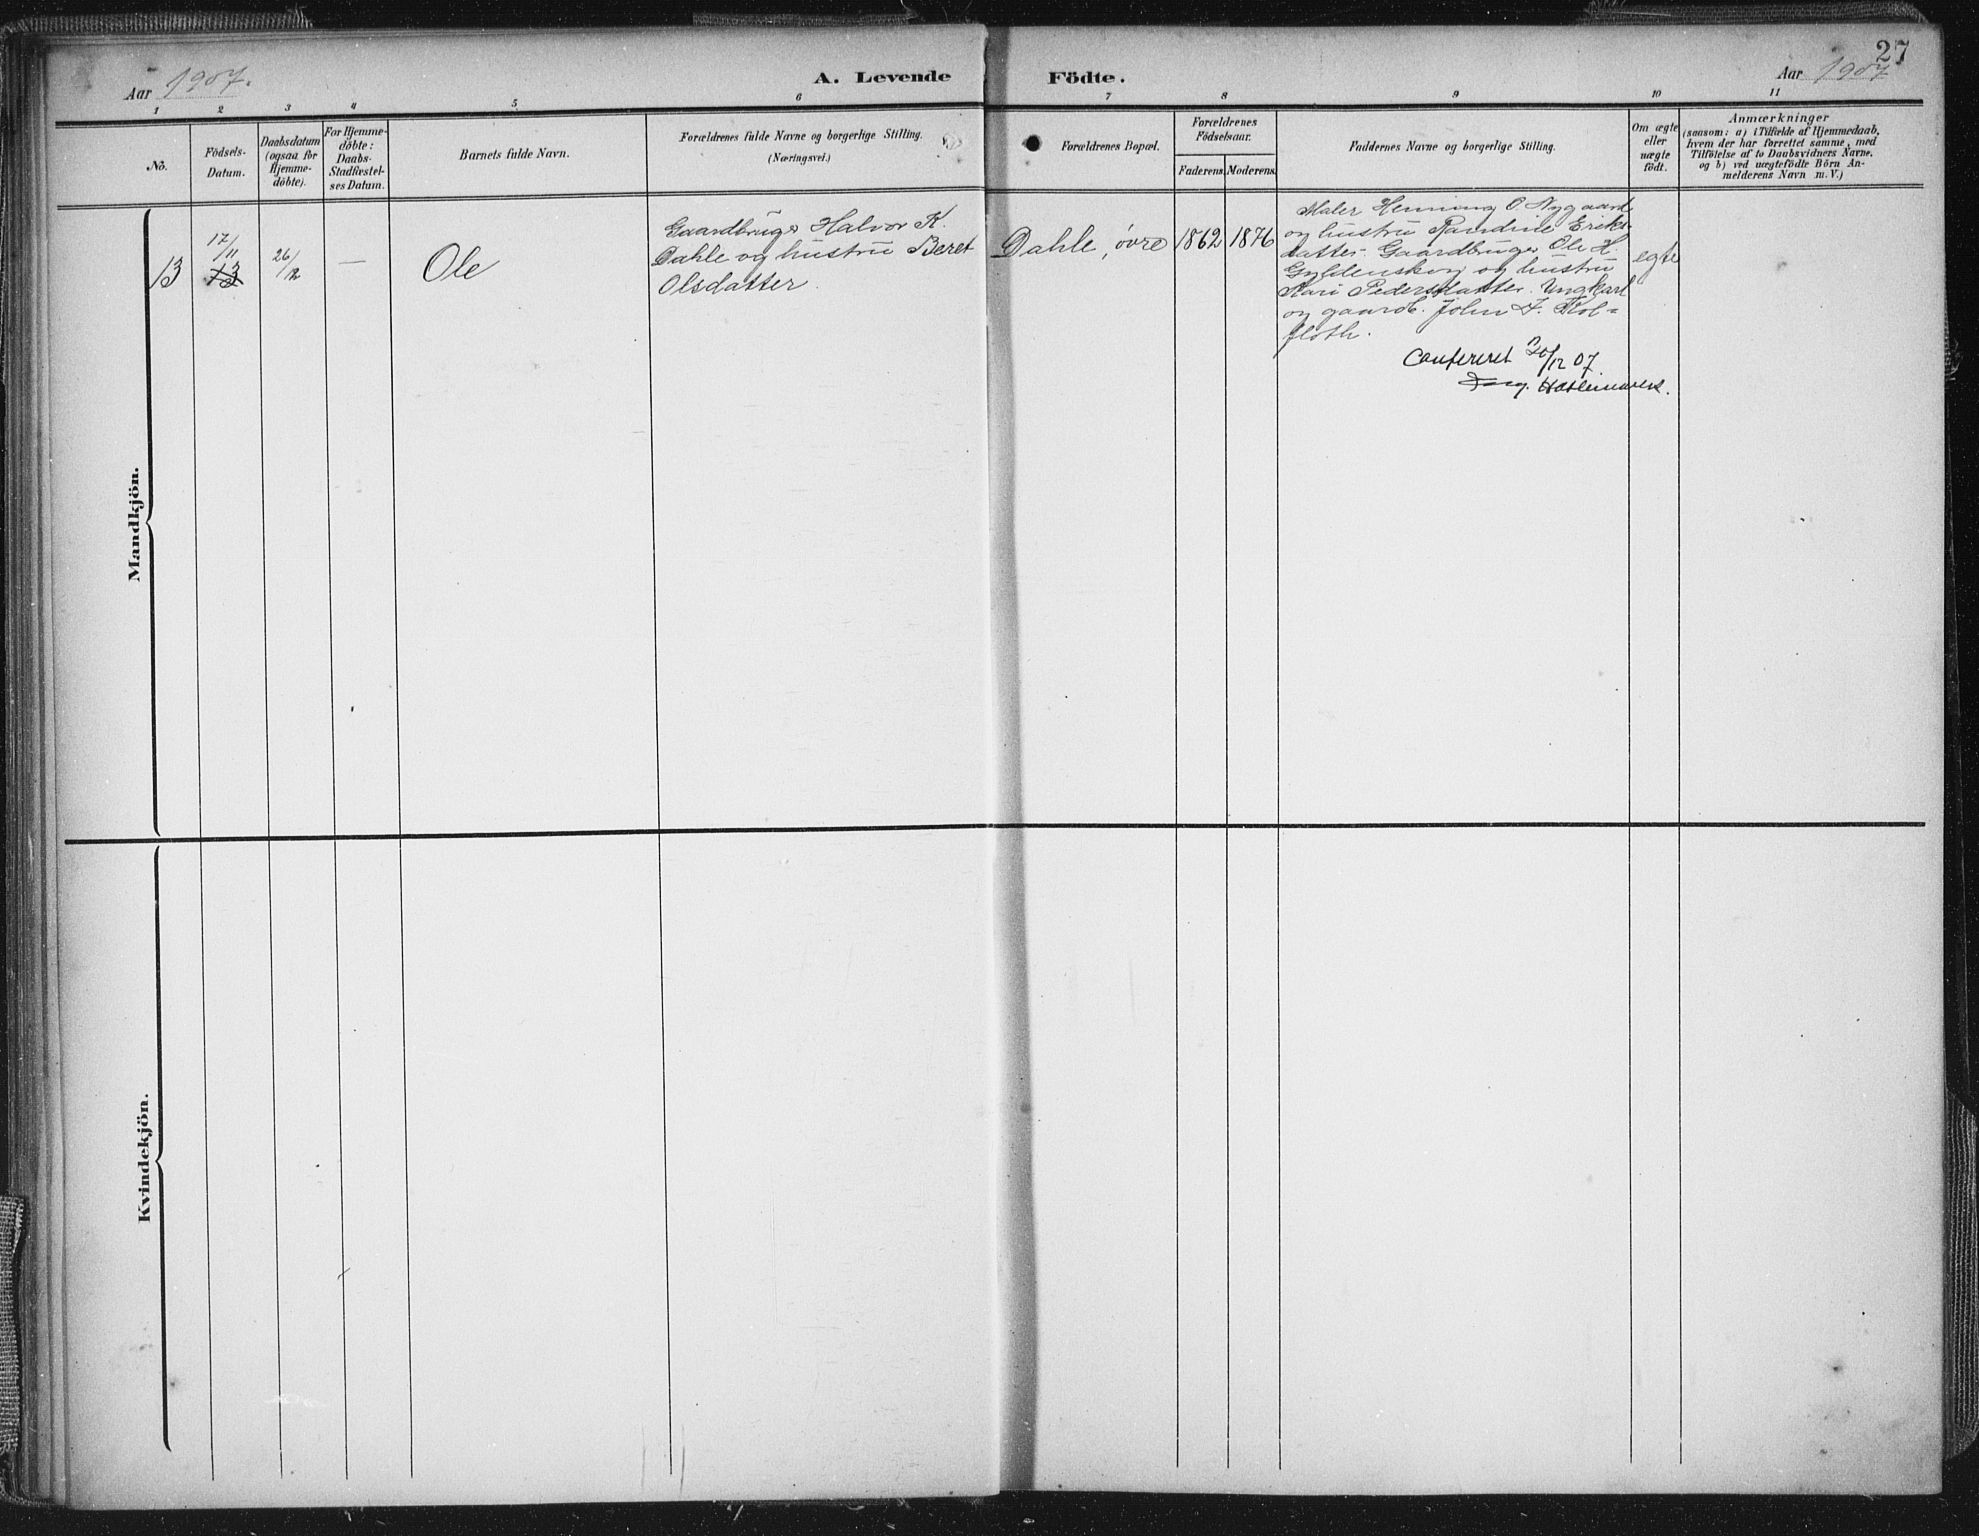 27
Aar 1907.
A. Levende Födte.
Aar 1907
1 2 3 4 5 6 7 8 9 10 11
No.
Födsels-
Datum.
Daabsdatum
(ogsaa for
Hjemme-
döbte).
For Hjemme-
döbte:
Daabs-
Stadfæstel-
ses Datum.
Barnets fulde Navn.
Forældrenes fulde Navne og borgerlige Stilling.
(Næringsvei.)
Forældrenes Bopæl.
Forældrenes
Födselsaar.
Faderens. Moderens.
Faddernes Navne og borgerlige Stilling.
Om ægte
eller
uægte
födt.
Anmærkninger
(saasom: a) i Tilfælde af Hjemmedaab,
hvem der har forrettet samme, med
Tilföielse af to Daabsvidners Navne,
og b) ved uægtefödte Börn An-
melderens Navn m. V.)
Mandkjön.
13
17/11
13
26/12
—
Ole
Gaardbruger Halvor K.
Dahle og hustru Beret
Olsdatter.
Dahle, övre
1862
1876
Maler Henning O. Nygaard
og hustru Randine Eriks-
datter. Gaardbruger Ole H.
Gyldenskog og hustru
Kari Pedersdatter. Ungkarl
og gaardb. John I. Kol-
floth.
egte
Confereret 30/12 07.
Kvindekjön.